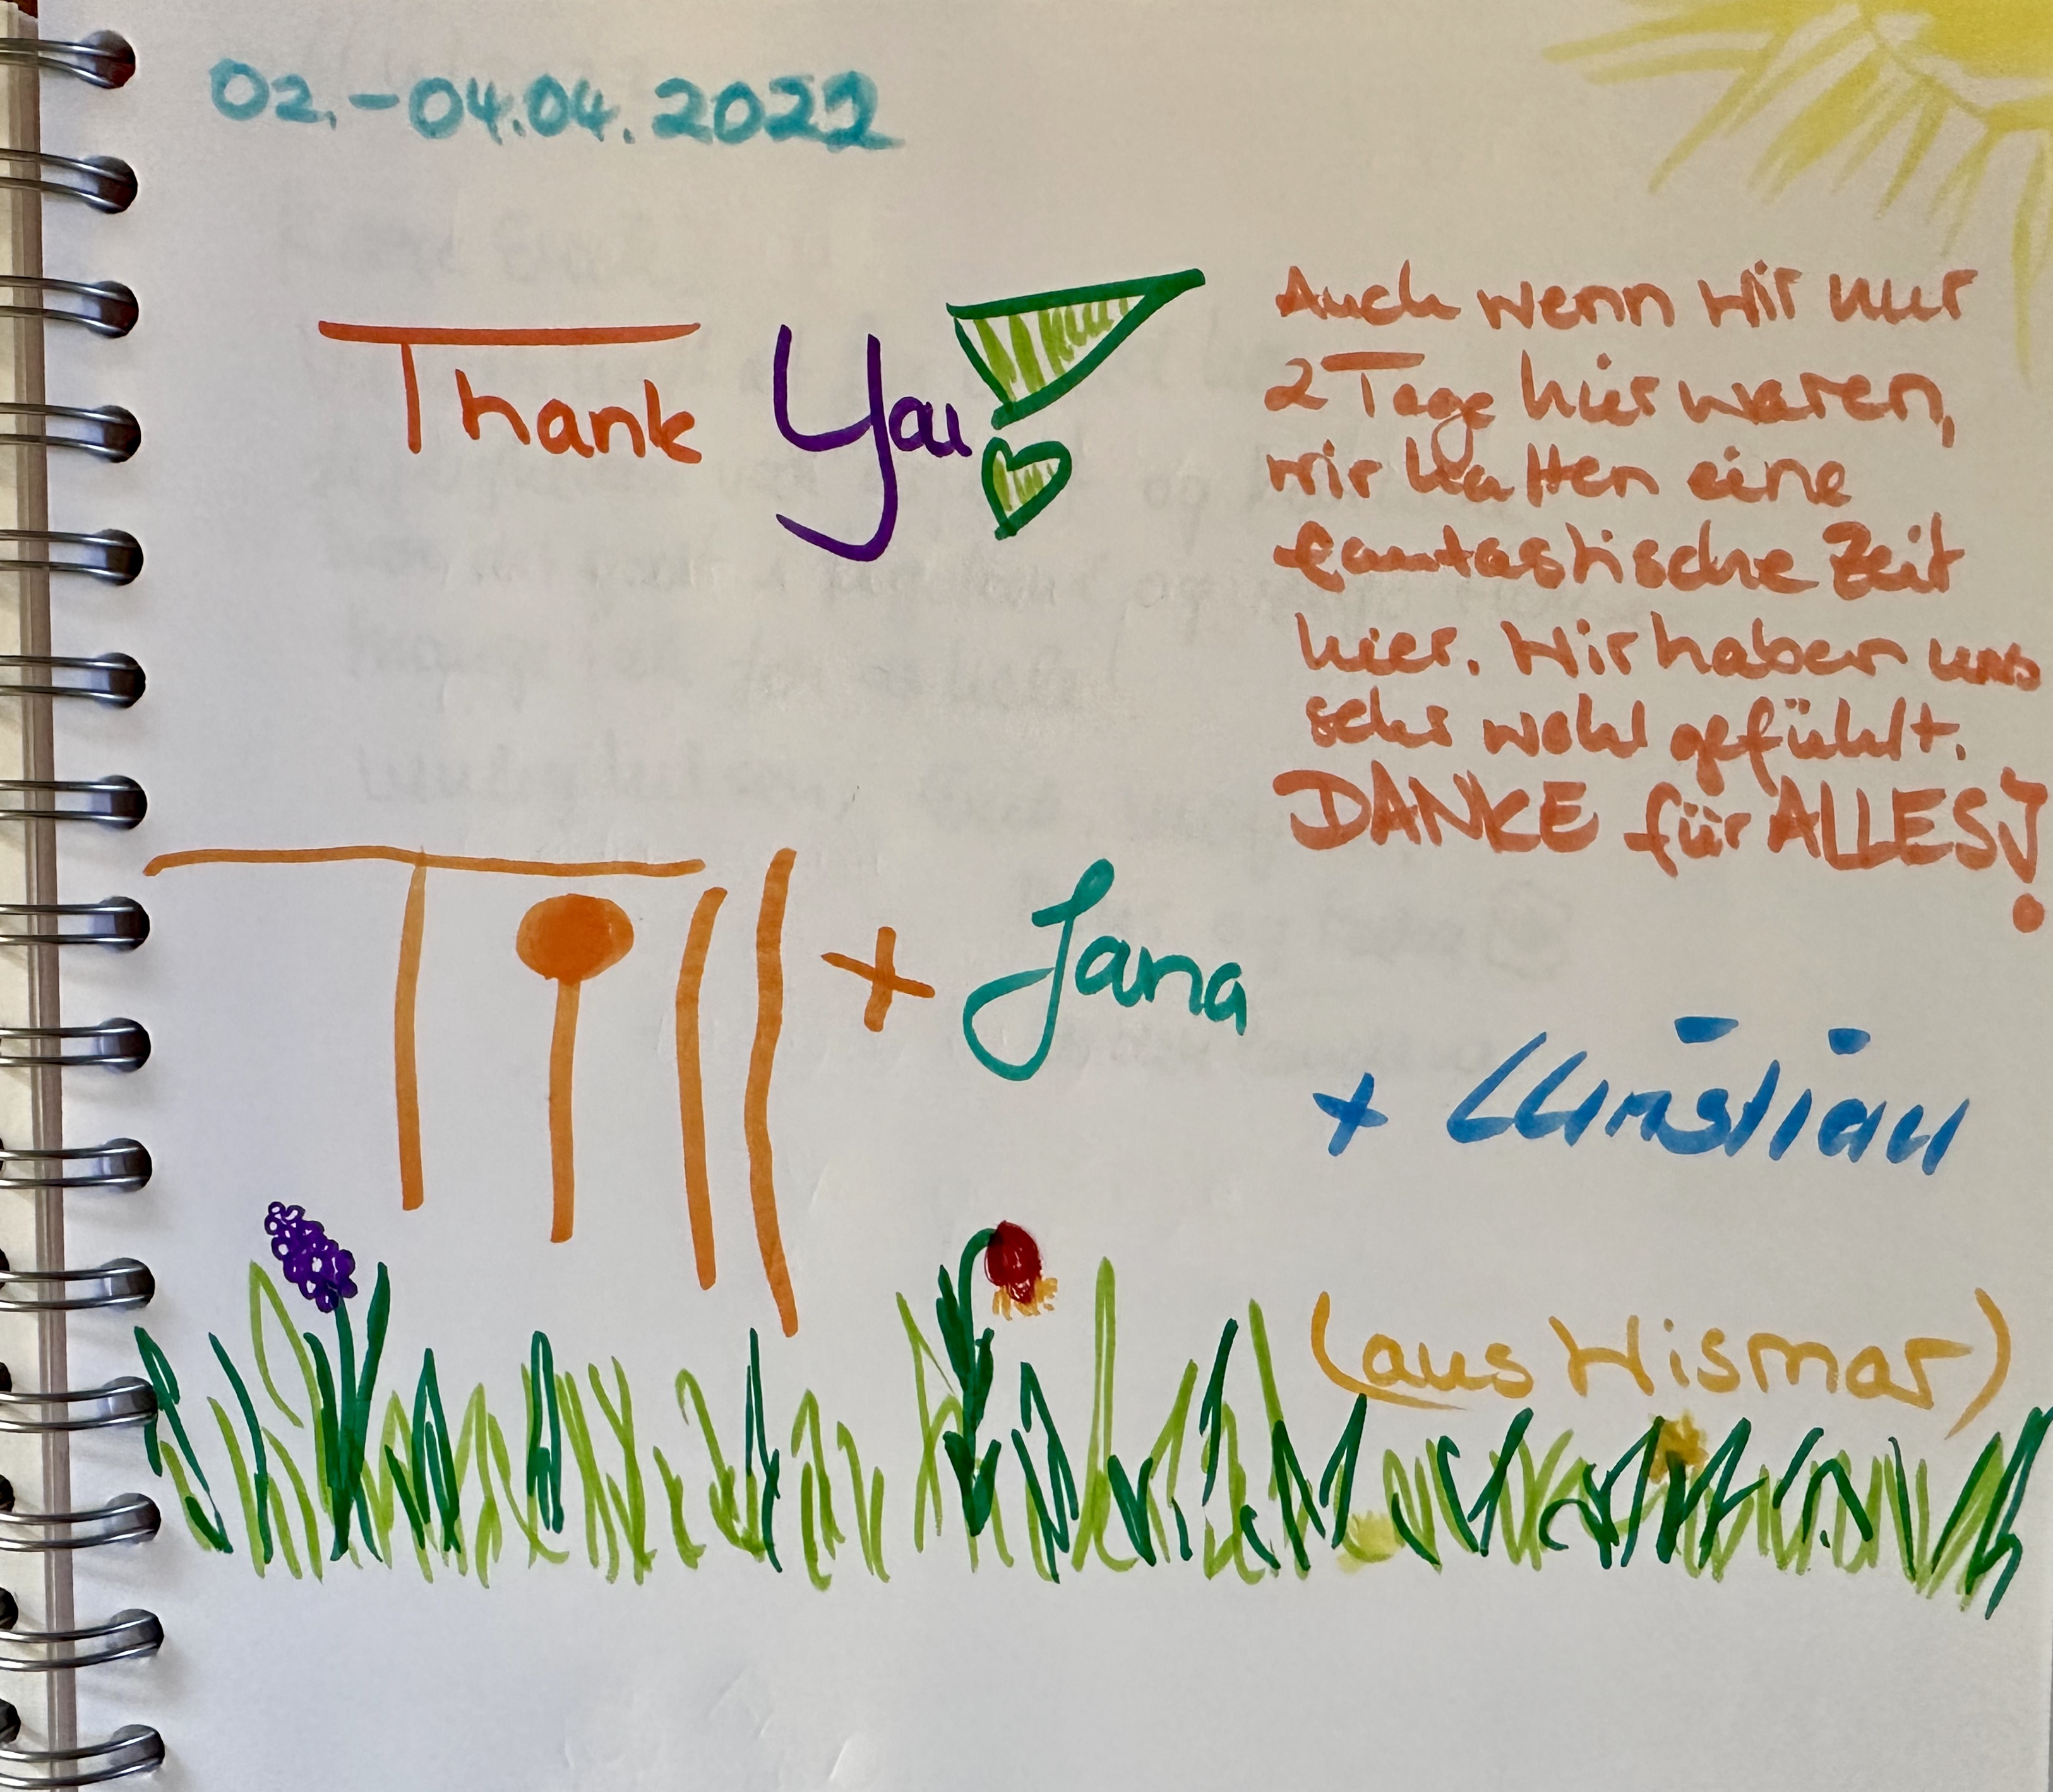 02.-04.04.2022
Thank You!
Auch wenn wir nur
2 Tage hier waren,
wir hatten eine
fantastische Zeit
hier. Wir haben uns
sehr wohl gefühlt.
DANKE für ALLES!
Till + Jana
+ Christian
(aus Wismar)